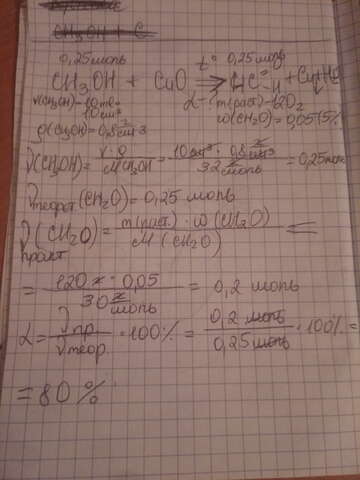 CH₃OH + C
0,25 моль t° 0,25 моль
CH₃OH + CuO ⇒ HC=O-H + Cu + H₂
V(CH₃OH)=10 мл= α- m(раст)=120г
10 см³ ω(CH₂O)=0,05(5%
ρ(CH₃OH)=0,8 г/см³
ν(CH₃OH)= V·ρ / M CH₃OH = 10 см³ · 0,8 г/см³ / 32 г/моль = 0,25 моль
ν теорет (CH₂O)=0,25 моль
ν практ (CH₂O)= m(раст.) · ω(CH₂O) / M(CH₂O) =
= 120 г · 0,05 / 30 г/моль = 0,2 моль
α= ν пр. / ν теор. · 100% = 0,2 моль / 0,25 моль · 100% =
= 80 %